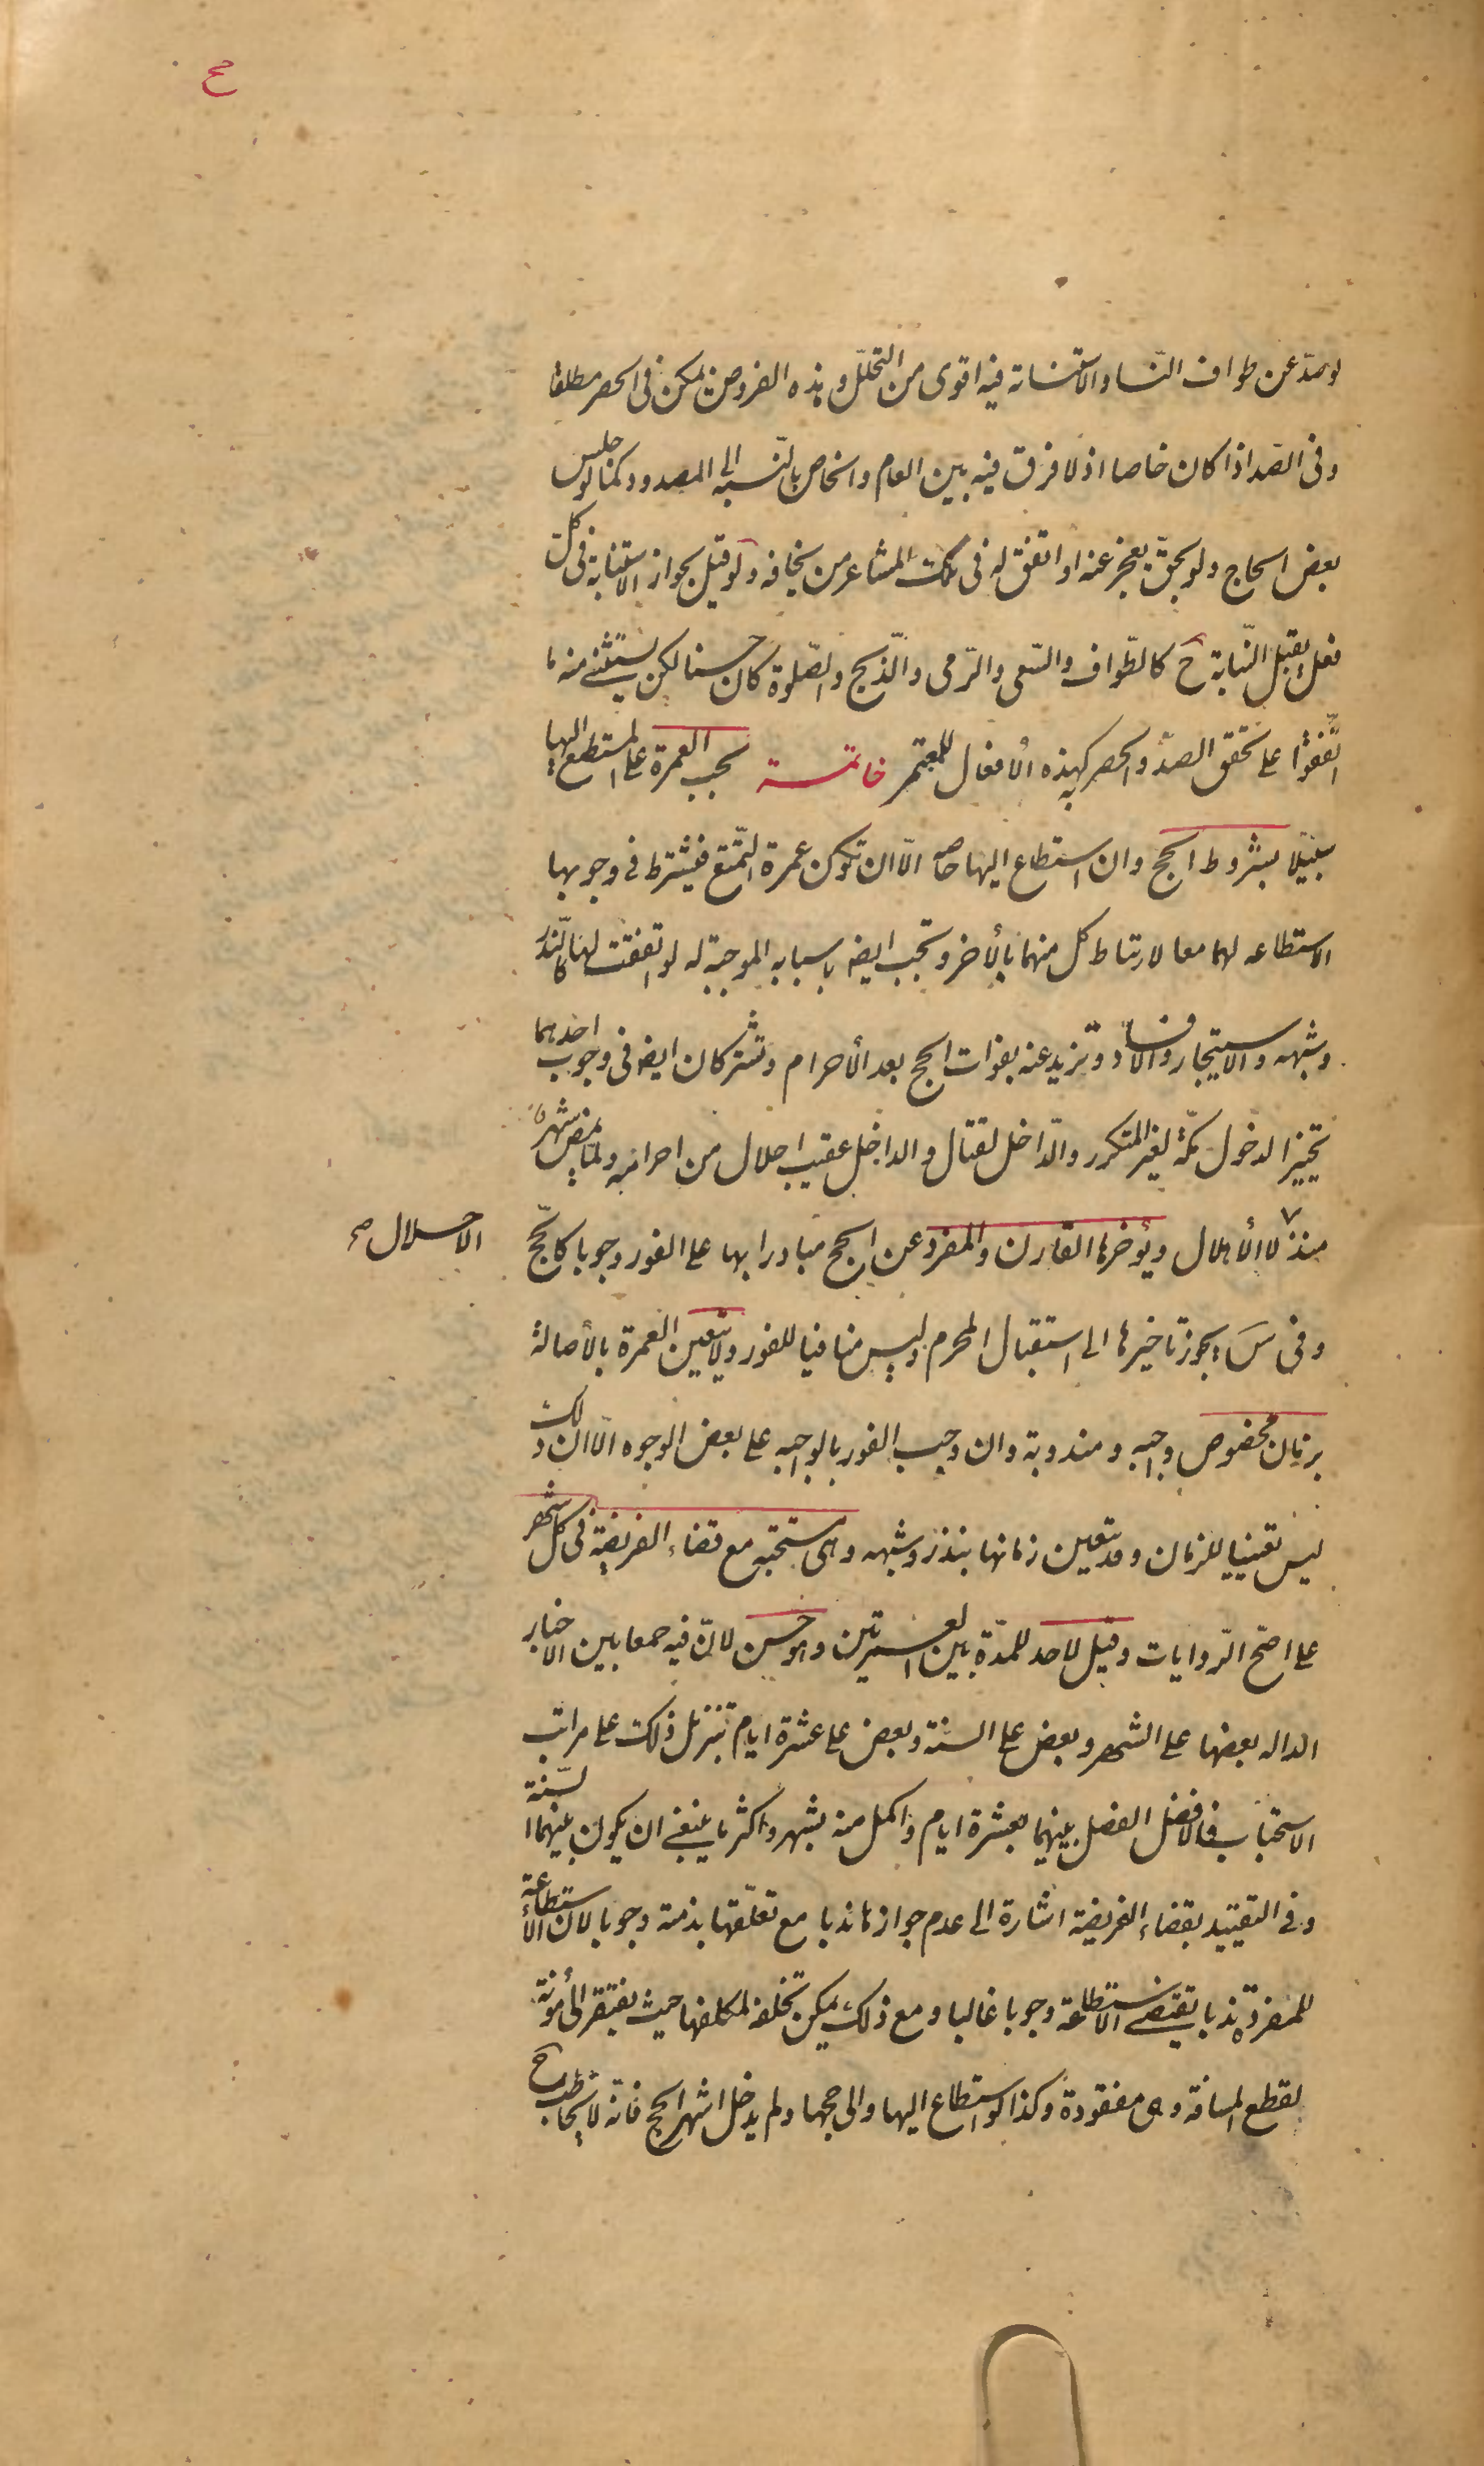 صح
او صدّ عن طواف النّساء والاستنابة فيه اقوى من التحلّل وهذه الفروض يمكن فى الحصر مطلقا
وفى الصّد اذا كان خاصا اذ لا فرق فيه بين العام والخاص بالنّسبه الى المصدود كما لو حبس
بعض الحاج ولو بحق يعجز عنه او اتفق له فى تلك المشاعر من يخافه ولو قيل بجواز الاستنابة فى كل
فعل يقبل النّيابة ح كالطّواف والسّعى والرّمى والذّبح والصّلوة كان حسنا لكن يستثنى منه ما
اتّفقوا على تحقق الصدّ والحصر به كهذه الأفعال للمعتمر خاتمـــة تجب العمرة على المستطيع اليها
سبيلا بشروط الحج وان استطاع اليها خاصه الّا ان تكون عمرة التّمتع فيشترط فى وجوبها
الاستطاعه لهما معا لارتباط كل منهما بالأخر وتجب ايضه باسبابه الموجبة له لو اتفقت لها كالنّذر
وشبهه والاستيجار والافساد وتزيد عنه بفوات الحج بعد الأحرام وتشتركان ايضه فى وجوب احدهما
تخييرا لدخول مكّة لغير المتكرر والدّاخل لقتال والداخل عقيب احلال من احرام ولما يمض شهر
منذ الأحلال لا الأهلال ويؤخرها القارن والمفرد عن الحج مبادرا بها على الفور وجوبا كالحّج
الاحلال صح
وفى سَ يجوز تاخيرها الى استقبال المحرم وليس منافيا للفور ولا يتعين العمرة بالأصالة
بزمان مخصوص واجبه ومندوبة وان وجب الفور بالواجبه على بعض الوجوه الّا ان ذلك
ليس تعيينا للزمان وقد يتعين زمانها بنذر وشبهه وهى مستحبه مع قضاء الفريضة فى كل شهر
على اصّح الرّوايات وقيل لا حد للمدّة بين العمرتين وهو حسن لانّ فيه جمعا بين الاخبار
الداله بعضها على الشهر وبعض على السنة وبعض على عشرة ايام بتنزيل ذلك على مراتب
الاستحباب فالافضل الفصل بينهما بعشرة ايام واكمل منه بشهر واكثر ما ينبغى ان يكون بينهما السّنة
وفى التقييد بقضاء الفريضة اشارة الى عدم جوازها ندبا مع تعلّقها بذمته وجوبا لان الأستطاعة
للمفردة ندبا يقتضى الاستطاعة وجوبا غالبا ومع ذلك يمكن تخلفه لمكلفها حيث يفتقر الى مؤنة
لقطع المسافة وهى مفقودة وكذا لو استطاع اليها والى حجها ولم يدخل اشهر الحج فانه لا يخاطب ح